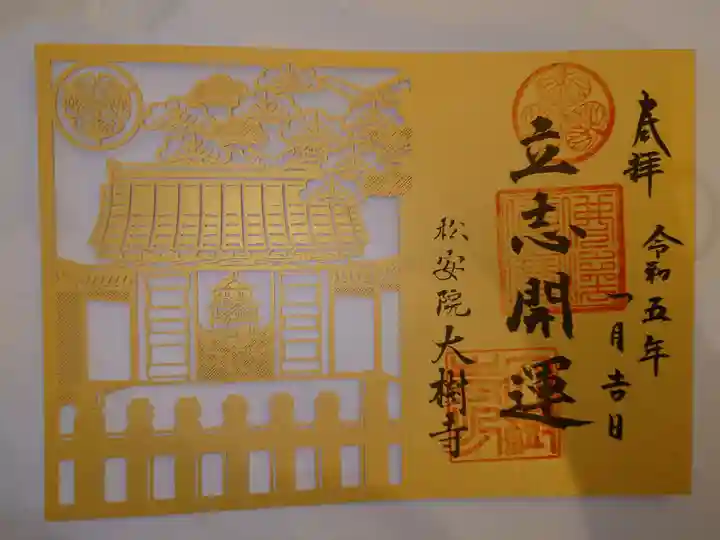 奉拝
令和五年
一月吉日
立志開運
松安院
大樹寺